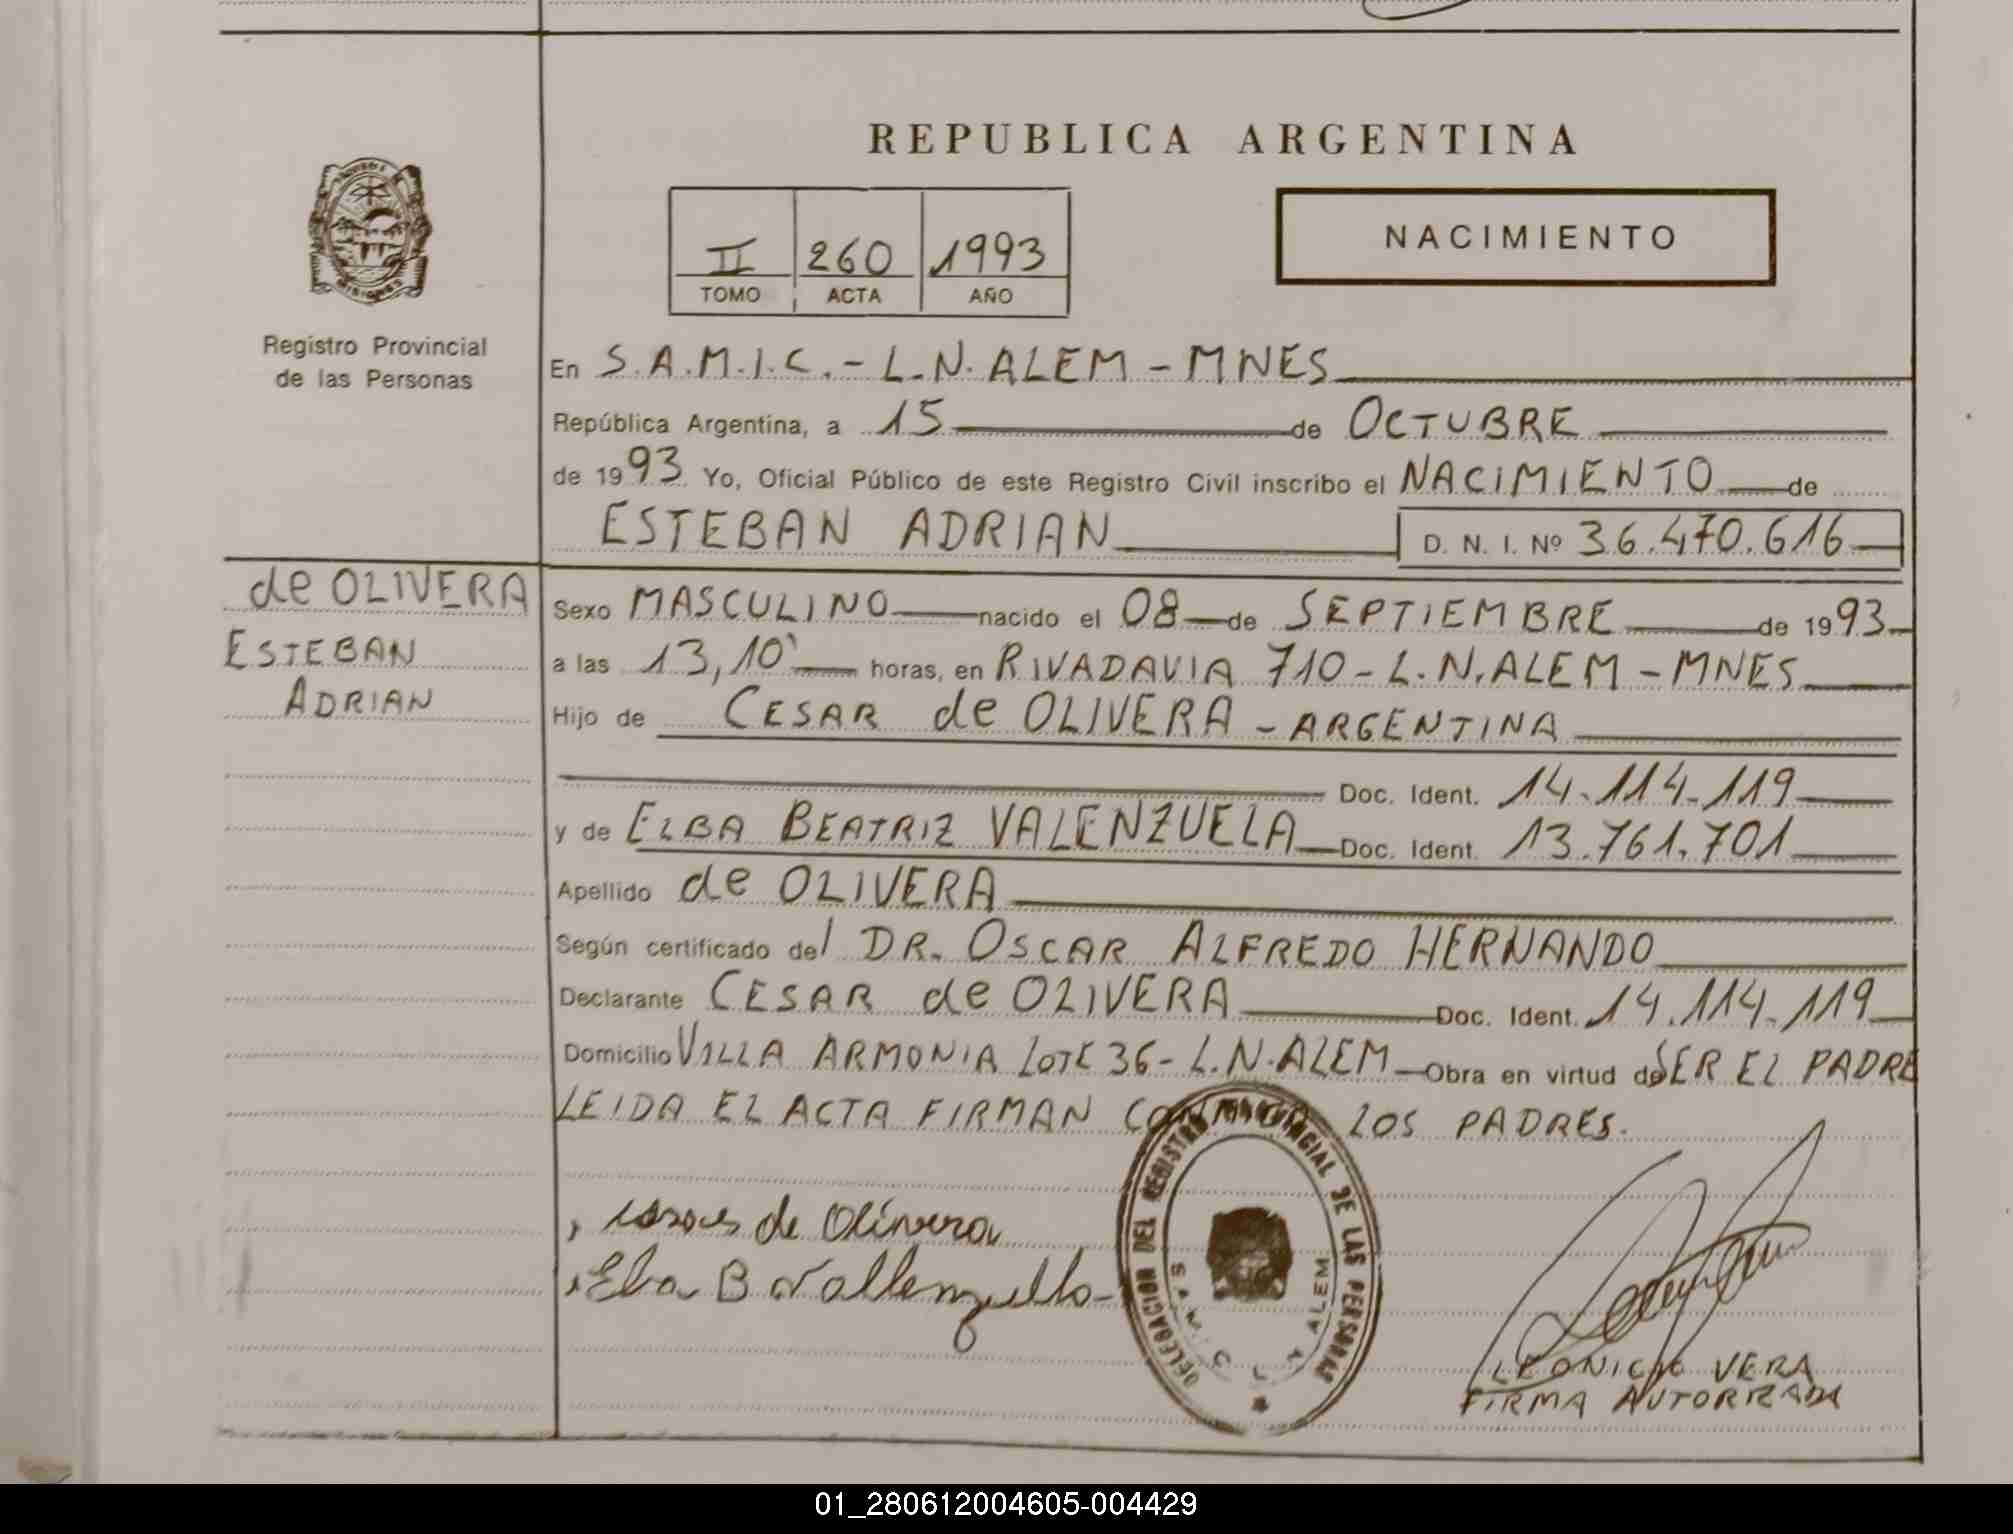 REPUBLICA ARGENTINA
II 260 1993
TOMO ACTA AÑO
NACIMIENTO
MISIONES
Registro Provincial
de las Personas
En S.A.M.I.C. - L.N. ALEM - MNES
República Argentina, a 15 de OCTUBRE
de 1993 Yo, Oficial Público de este Registro Civil inscribo el NACIMIENTO de
ESTEBAN ADRIAN D. N. I. Nº 36.470.616
de OLIVERA
ESTEBAN
ADRIAN
Sexo MASCULINO nacido el 08 de SEPTIEMBRE de 1993
a las 13,10' horas, en RIVADAVIA 710 - L.N. ALEM - MNES
Hijo de CESAR de OLIVERA - ARGENTINA
Doc. Ident. 14.114.119
y de ELBA BEATRIZ VALENZUELA Doc. Ident. 13.761.701
Apellido de OLIVERA
Según certificado del DR. OSCAR ALFREDO HERNANDO
Declarante CESAR de OLIVERA Doc. Ident. 14.114.119
Domicilio VILLA ARMONIA LOTE 36 - L.N. ALEM Obra en virtud de SER EL PADRE
LEIDA EL ACTA FIRMAN CONMIGO LOS PADRES.
de Olivera
Elba B Vallenzuello
DELEGACION DEL REGISTRO PROVINCIAL DE LAS PERSONAS
S.A.M.I.C. L.N. ALEM
VERA
FIRMA AUTORIZADA
01_280612004605-004429